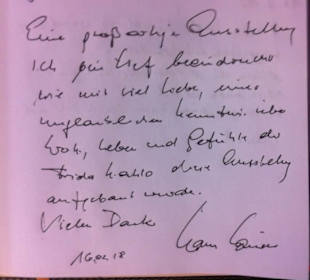 Eine großartige Ausstellung
Ich bin tief beeindruckt
wie mit viel Liebe, einer
unglaublichen Kenntnis über
Werk, Leben und Gefühle der
Frida Kahlo diese Ausstellg
aufgebaut wurde.
Vielen Dank